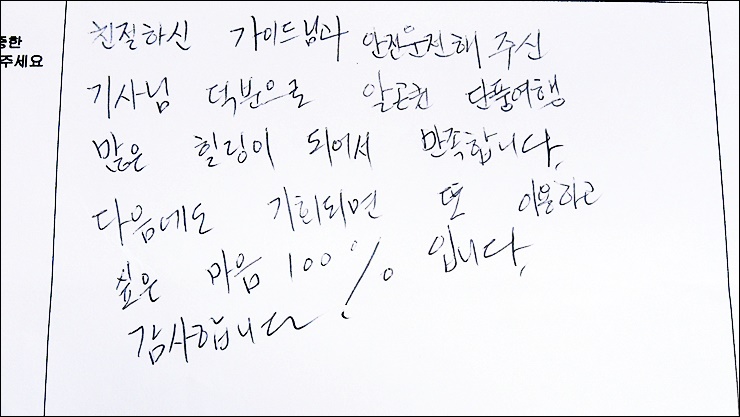 중한
주세요
친절하신 가이드님과 안전운전해 주신
기사님 덕분으로 알곤퀸 단풍여행
많은 힐링이 되어서 만족합니다.
다음에도 기회되면 또 이용하고
싶은 마음 100% 입니다.
감사합니다!